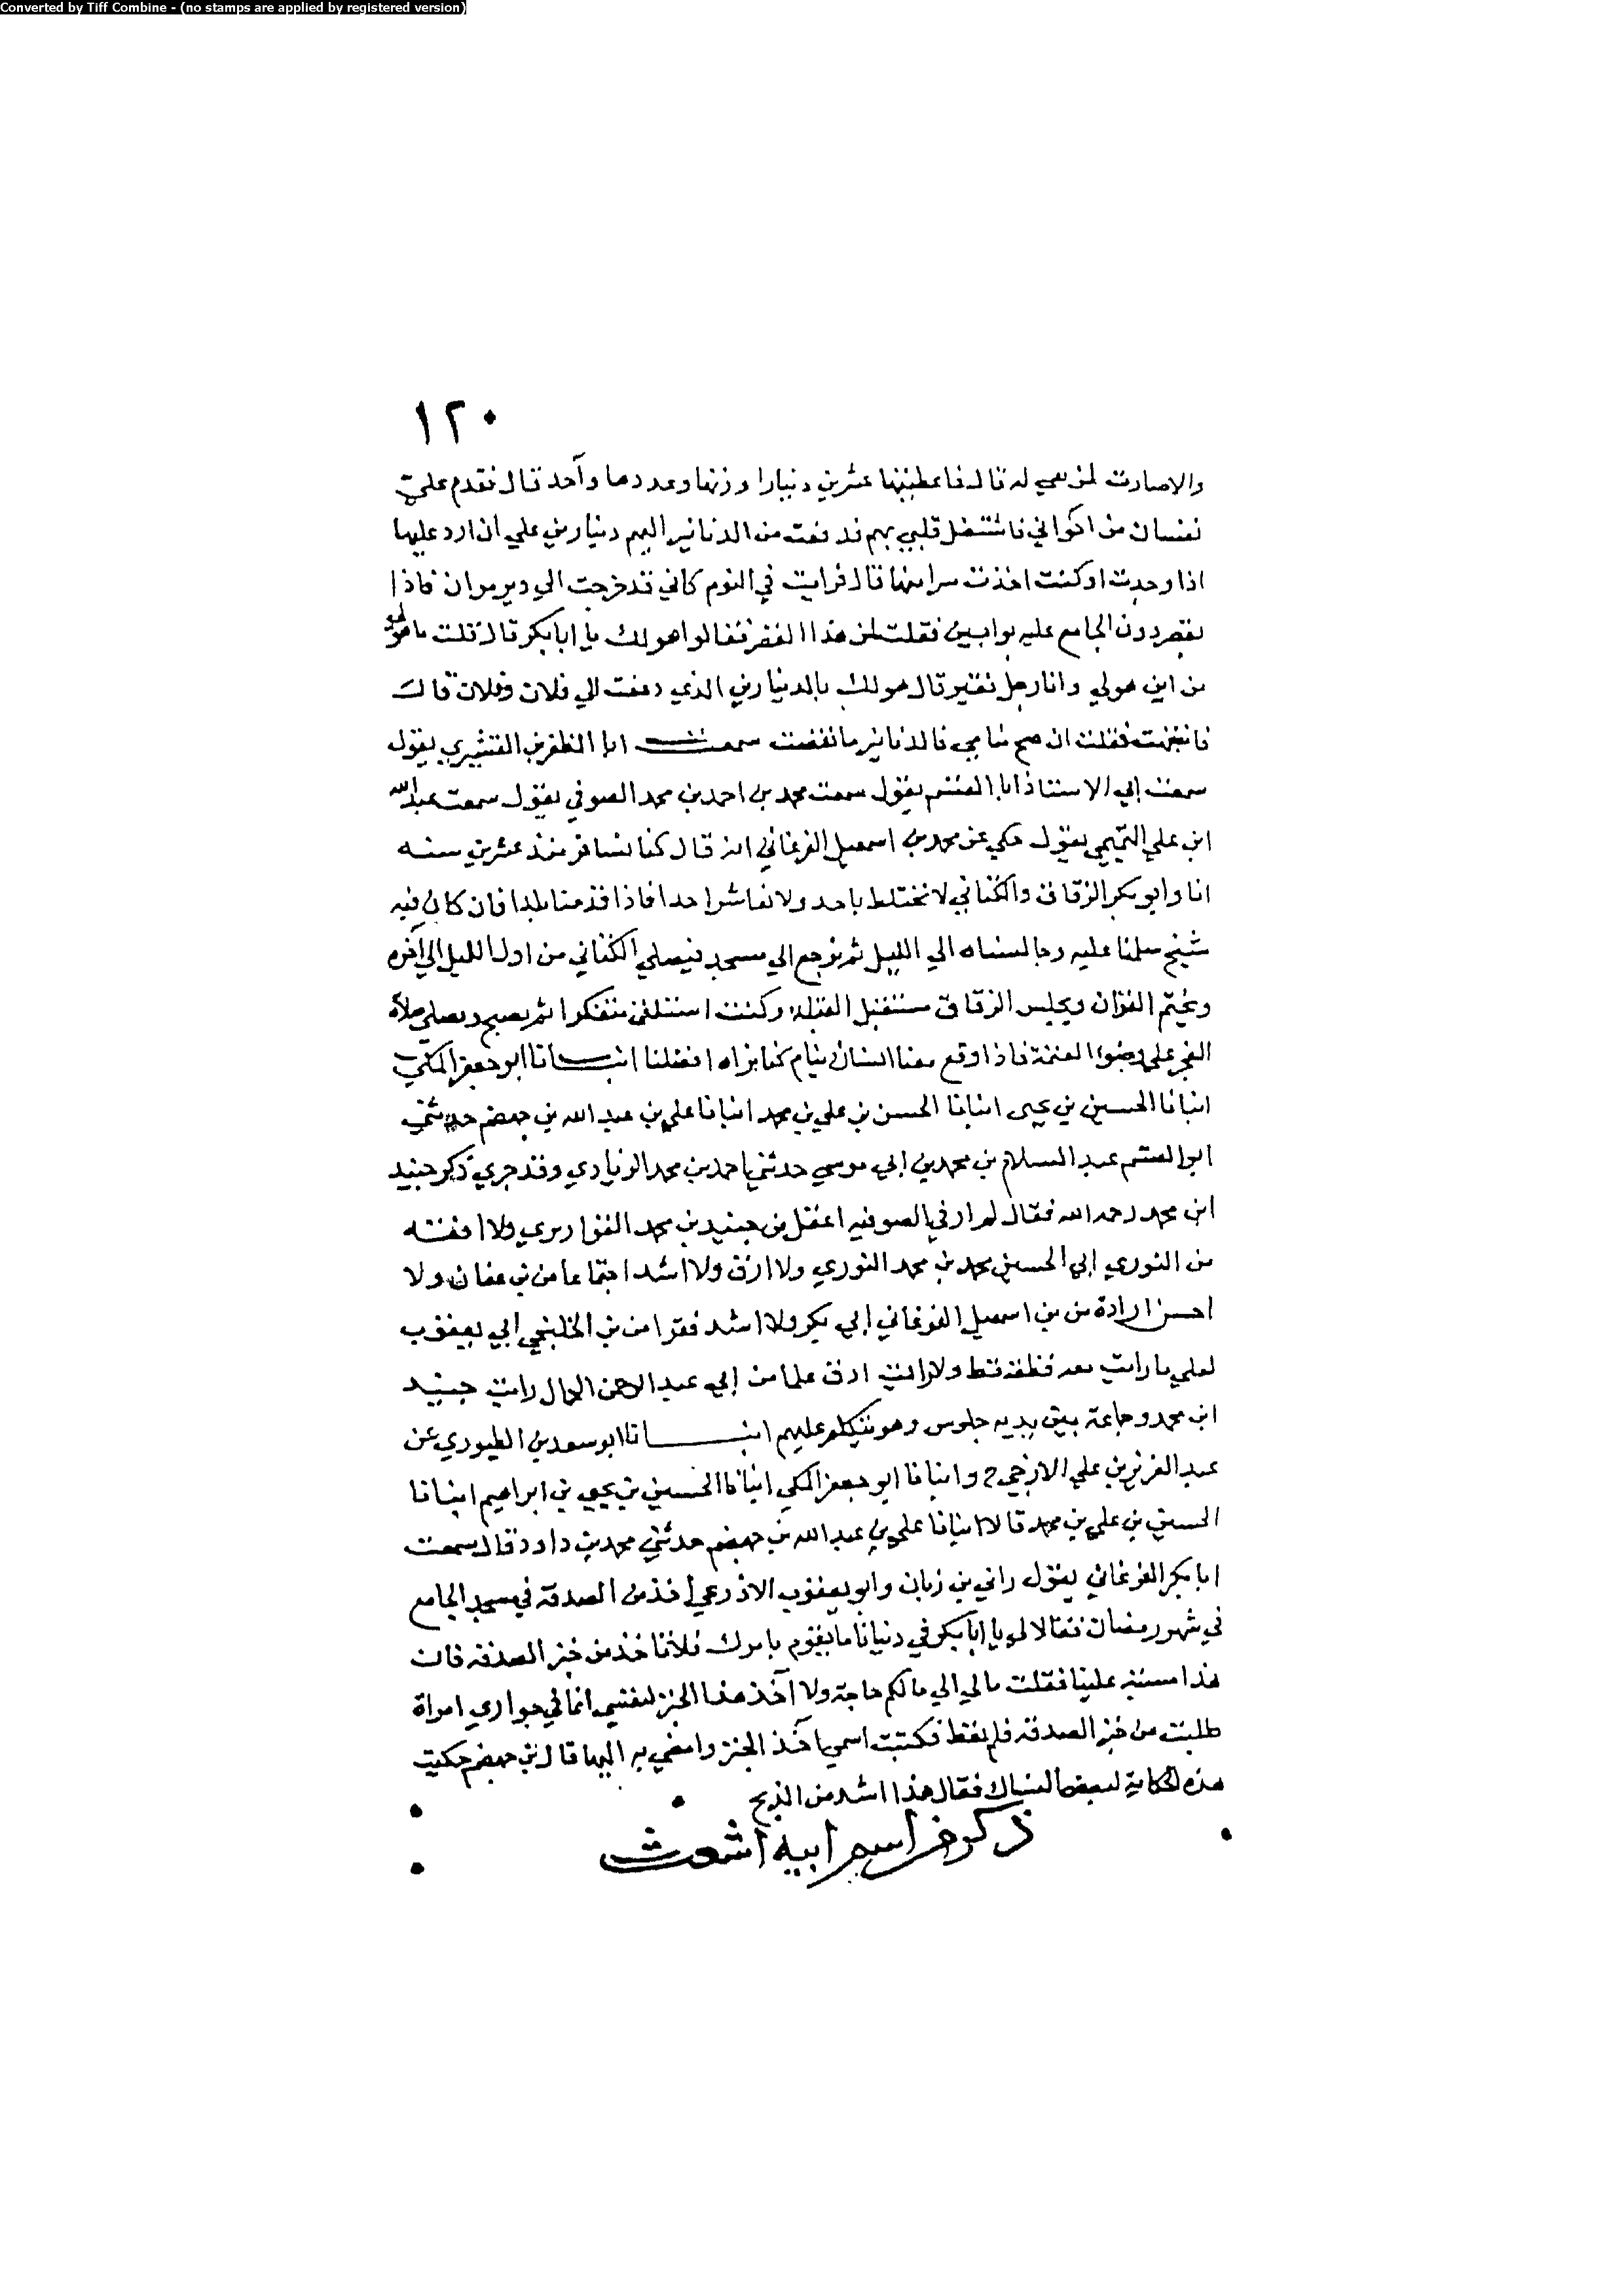 Converted by Tiff Combine - (no stamps are applied by registered version)
١٢٠
والاصارت لمن سمي له قال فاعطيتها عشرين دينارا وزنها وعددها واحد قال فقدم علي
نفسان من اخواني فاشتغل قلبي بهم فدفعت من الدنانير اليهم دينارين علي ان ارد عليها
اذا وجدت او كنت اخذت سرا منها قال فرايت في النوم كاني قد خرجت الي دير مران فاذا
بقصر دون الجامع عليه بوابين فقلت لمن هذا القصر فقالوا هو لك يا ابا بكر قال قلت ما هو لي
من اين هو لي وانا رجل فقير قال هو لك بالدينارين الذي دفعت الي فلان وفلان قال
فانتبهت فقلت ان صح منامي فالدنانير ما نقصت سمعت ابا المظفر بن القشيري يقول
سمعت ابي الاستاذ ابا القسم يقول سمعت محمد بن احمد بن محمد الصوفي يقول سمعت عبد الله
ابن علي التميمي يقول حكي عن محمد بن اسمعيل الفرغاني انه قال كنا نسافر منذ عشرين سنه
انا وابو بكر الزقاق والكتاني لا نختلط باحد ولا نعاشر احدا فاذا قدمنا بلدا فان كان فيه
شيخ سلمنا عليه وجالسناه الي الليل ثم نرجع الي مسجد فيصلي الكتاني من اول الليل الي آخره
ويختم القران ويجلس الزقاق مستقبل القبلة وكنت استلقي متفكرا ثم يصبح ويصلي صلاة
الفجر علي وضوء العتمة فاذا وقع معنا انسان ينام كنا نراه افضلنا انبانا ابو جعفر المكي
انبانا الحسين بن يحيى انبانا الحسن بن علي بن محمد انبانا علي بن عبد الله بن جهضم حدثني
ابو القسم عبد السلام بن محمد بن ابي موسي حدثني احمد بن محمد الزيادي وقد جري ذكر جنيد
ابن محمد رحمه الله فقال لم ار في الصوفيه اعقل من جنيد بن محمد القواريري ولا افقه
من النوري ابي الحسين محمد بن محمد النوري ولا ارق ولا اشد اجتماعا من بن عفان ولا
احسن ارادة من بن اسمعيل الفرغاني ابي بكر ولا اشد فقرا من بن الخلنجي ابي يعقوب
لعلي ما رايت معه قطعة قط ولا رايت ادق علما من ابي عبد الرحمن الرمال رايت جنيد
ابن محمد وجماعة بين يديه جلوس وهو يتكلم عليهم انبانا ابو سعد بن الطيوري عن
عبد العزيز بن علي الازجي ح وانبانا ابو جعفر المكي انبانا الحسين بن يحيى بن ابراهيم انبانا
الحسين بن علي بن محمد قالا انبانا علي بن عبد الله بن جهضم حدثني محمد بن داود قال سمعت
ابا بكر الفرغاني يقول راني بن زبان وابو يعقوب الاذرعي اخذ من الصدقة في مسجد الجامع
في شهر رمضان فقالا لي يا ابا بكر في دنيانا ما يقوم بامرك فلا تاخذ من خبز الصدقة فان
هذا مسبة علينا فقلت ما لي الي مالكم حاجة ولا آخذ هذا الخبز لنفسي انما في جواري امراة
طلبت من خبز الصدقة فلم تعط فكتبت اسمي آخذ الخبز وامضي به اليها قال بن جهضم حكيت
هذه الحكاية لبعض النساك فقال هذا اشد من الذبح
ذكر من اسم ابيه اشعث